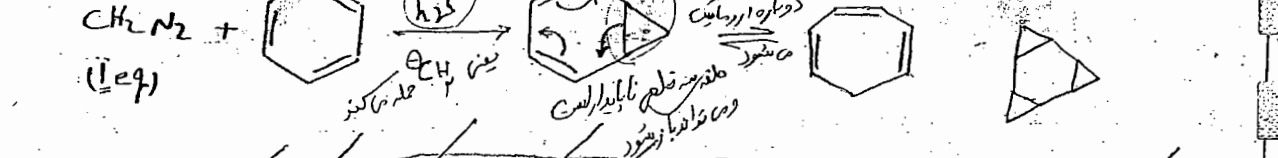 CH₂N₂ +
(1 eq)
hν
یعنی CH₂ حمله می‌کند
حلقه سه ضلعی ناپایدار است
و می‌تواند باز شود
دوباره آروماتیک
می‌شود